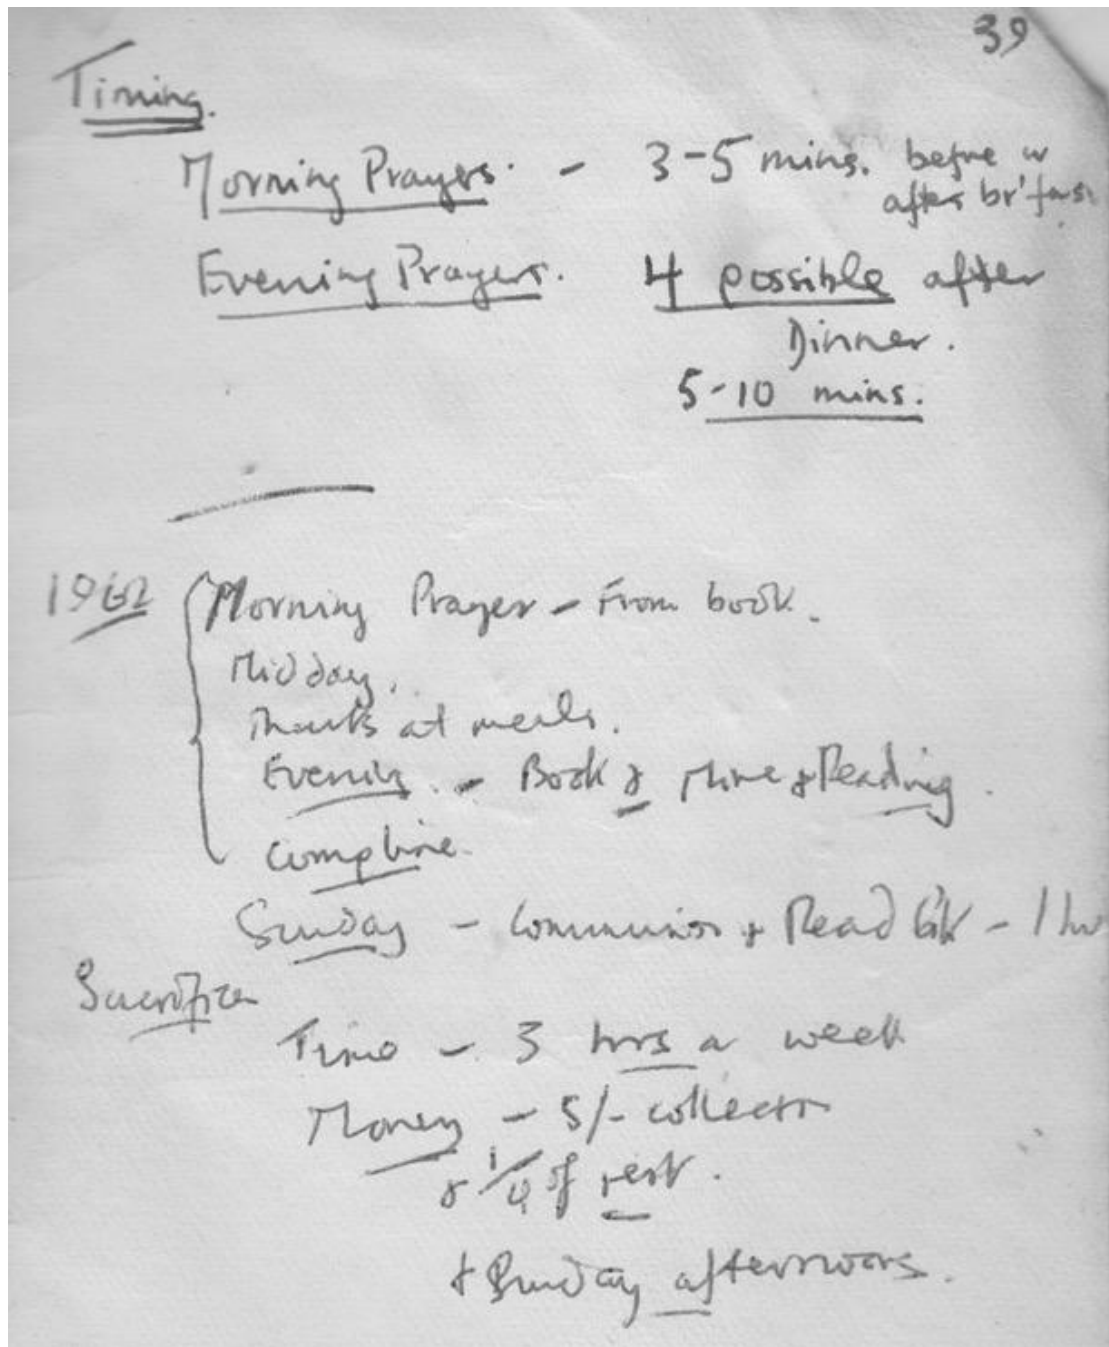 39
Timing.
Morning Prayers. - 3-5 mins. before or
after br'fas
Evening Prayers. 4 possible after
Dinner.
5-10 mins.
1962 Morning Prayer - From book.
Midday.
Thanks at meals.
Evening. - Book & Mine & Reading.
Compline.
Sunday - Communion & Read bk - 1 hr
Sacrifice
Time - 3 hrs a week
Money - 5/- collectn
& 1/4 of rest.
& Sunday afternoons.